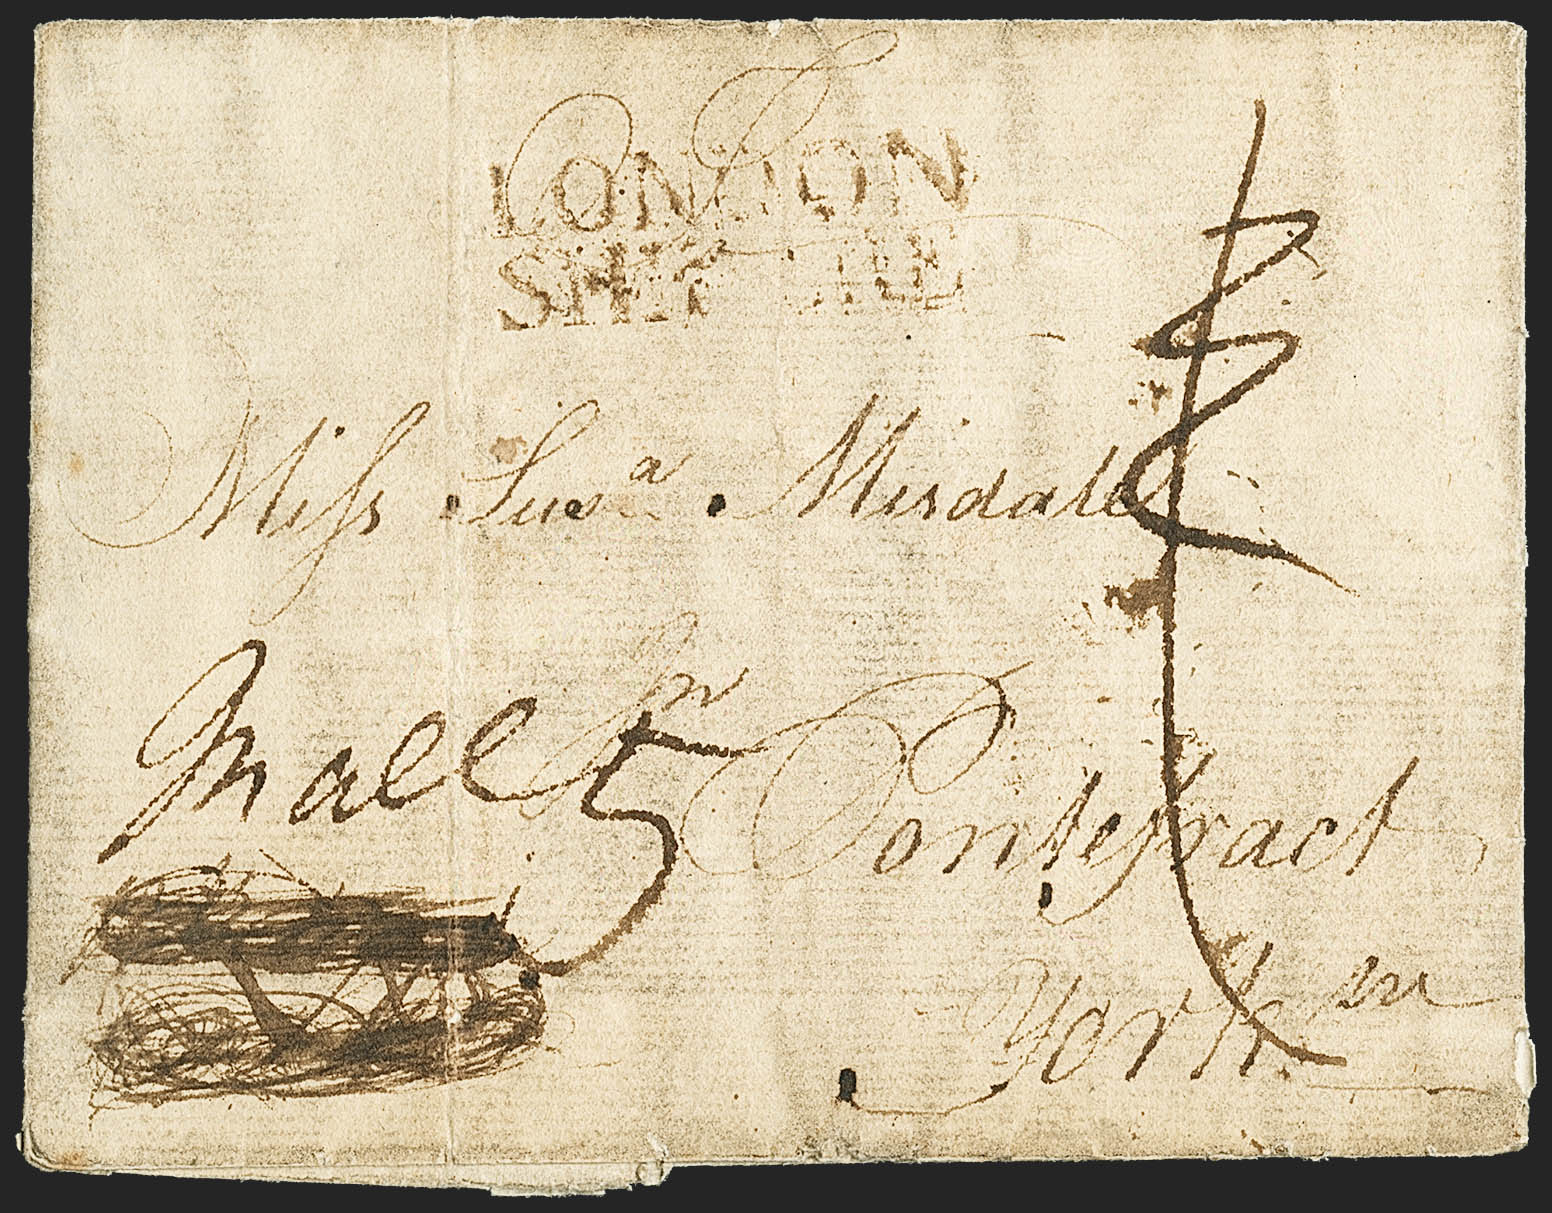 LONDON
SHIP LRE
Miss Sus.a Misdale
Mall 5 Pontefract
York